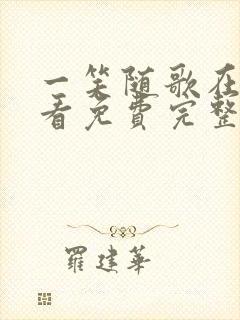 一笑随歌在
看免费完整
羅建華